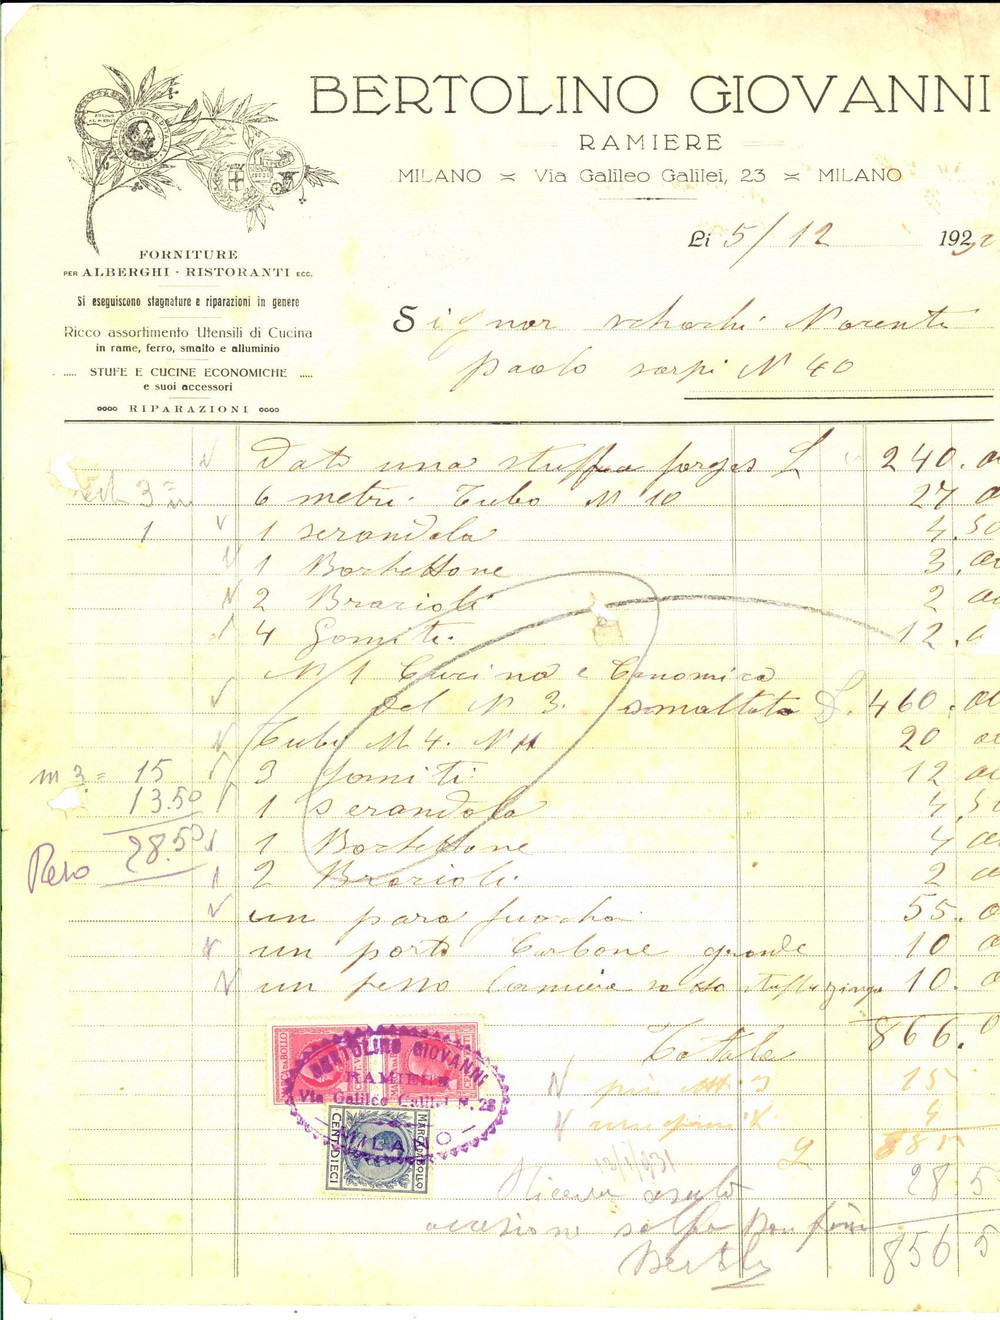 BERTOLINO GIOVANNI
RAMIERE
MILANO Via Galileo Galilei, 23 MILANO
Li 5/12 1930
FORNITURE
PER ALBERGHI - RISTORANTI ECC.
Si eseguiscono stagnature e riparazioni in genere
Ricco assortimento Utensili di Cucina
in rame, ferro, smalto e alluminio
STUFE E CUCINE ECONOMICHE
e suoi accessori
RIPARAZIONI
Signor
paolo sarpi N 40
Dato una stuffa L 240.00
3 6 metri Tubo N 10 27 00
1 1 serandola 4.50
1 Bochettone 3.00
2 Bracioli 2 00
4 Gomiti 12.0
N 1 Cucina
del N 3. smaltata L. 460.00
Tubi M 4. N 11 20 00
m 3 = 15 3 gomiti 12 00
13.50 1 serandola 4.50
28.50 1 Bochettone 4 00
Reso 2 Bracioli 2 00
un para fuocho 55.0
un porto Carbone grande 10 0
un pesso lamiera 10.0
Totale 866.0
più M 3 15
4
L 885
28.5
856 5
MARCA DA BOLLO
BERTOLINO GIOVANNI
RAMIERE
Via Galileo Galilei N. 23
MILANO
MARCA DA BOLLO
CENT. DIECI